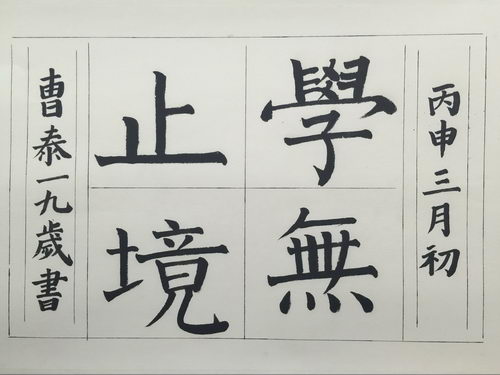 丙申三月初
學無
止境
曹泰一九歲書